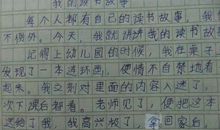 我的读书故事
每个人都有自己的读书故事，我
不例外，今天，我就讲讲我的读书故
记得上幼儿园的时候，我在桌子
发现了一本连环画，便情不自禁地看
起来，我立刻对里面的内容入迷了，
次下课自都看。老师见了，便把这本
送给了我，我高兴极了，拿回家自